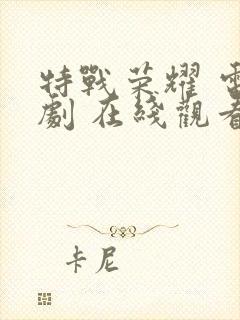 特戰榮耀 電
劇 在綫觀看
卡尼